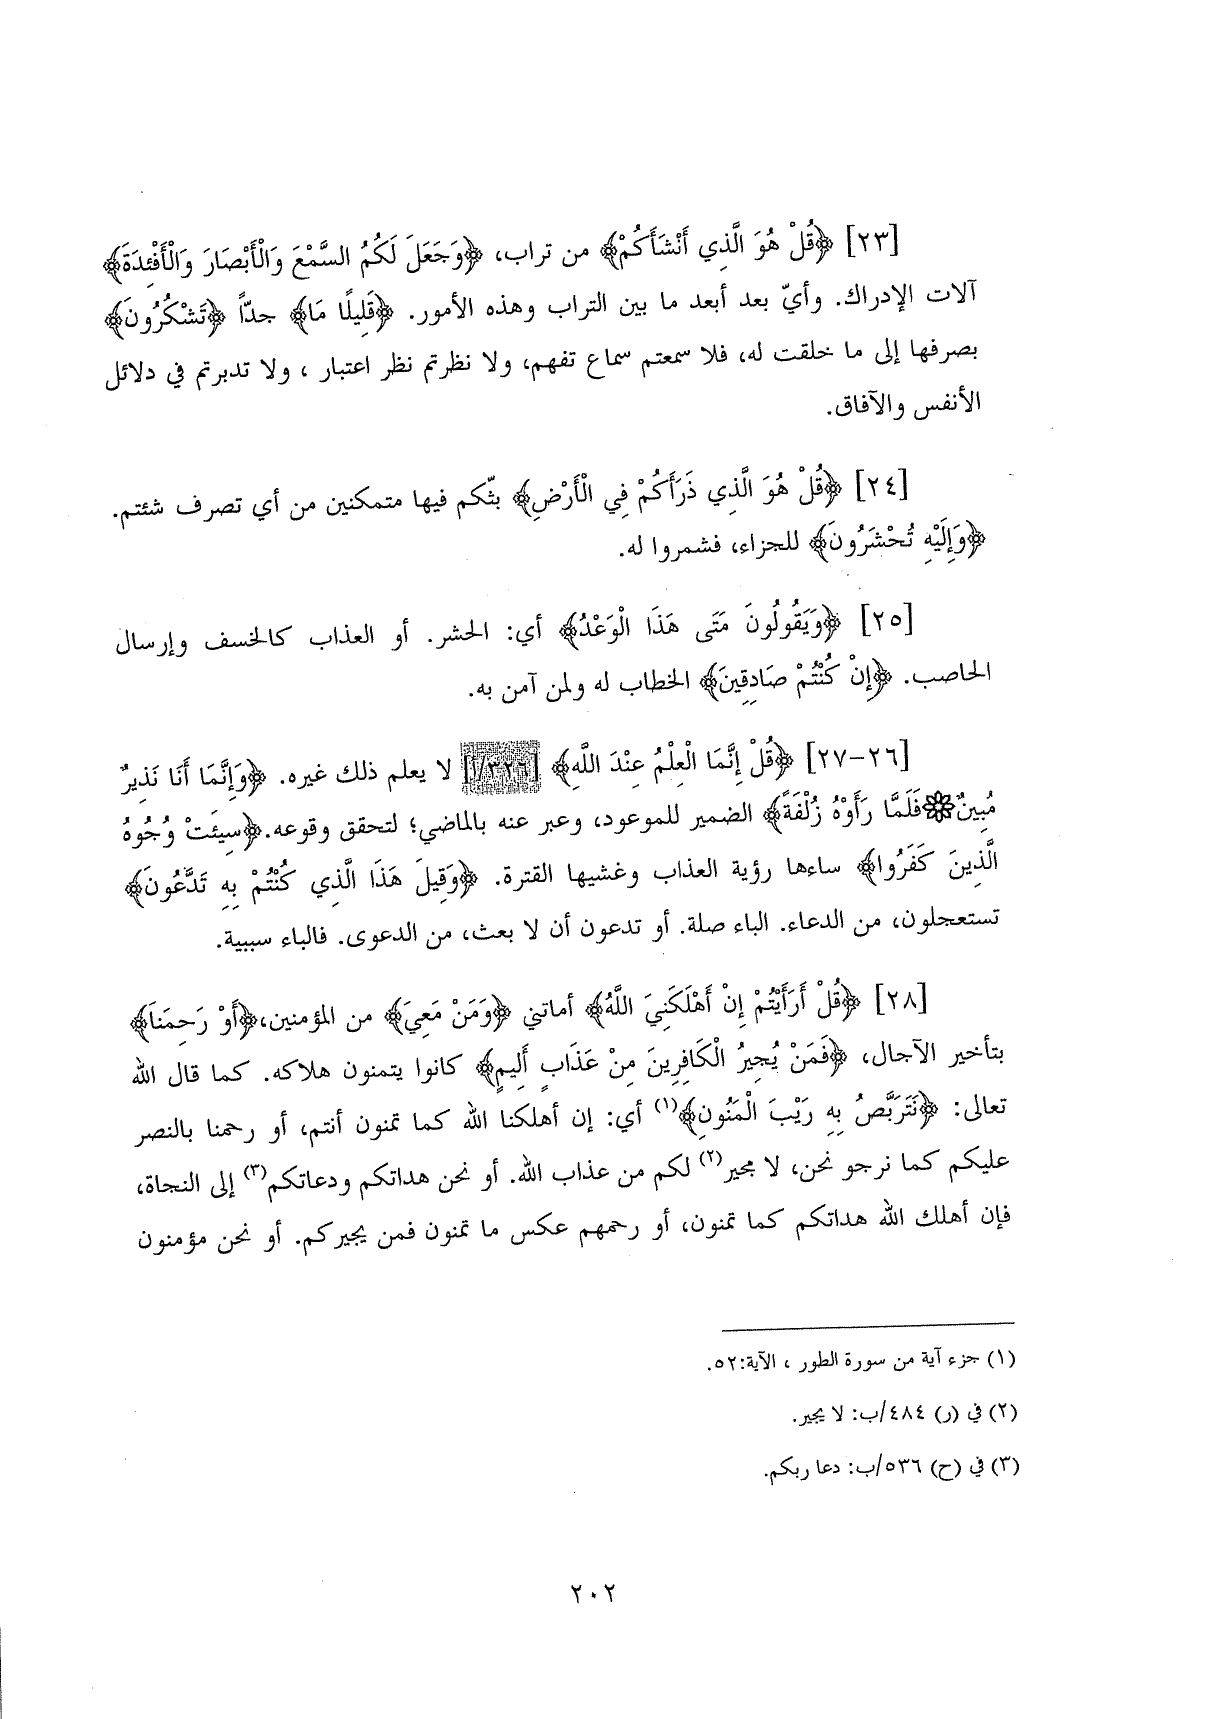 [٢٣] ﴿قُلْ هُوَ الَّذِي أَنْشَأَكُمْ﴾ من تراب، ﴿وَجَعَلَ لَكُمُ السَّمْعَ وَالْأَبْصَارَ وَالْأَفْئِدَةَ﴾
آلات الإدراك. وأيّ بعد أبعد ما بين التراب وهذه الأمور. ﴿قَلِيلًا مَا﴾ جدّاً ﴿تَشْكُرُونَ﴾
بصرفها إلى ما خلقت له، فلا سمعتم سماع تفهم، ولا نظرتم نظر اعتبار ، ولا تدبرتم في دلائل
الأنفس والآفاق.
[٢٤] ﴿قُلْ هُوَ الَّذِي ذَرَأَكُمْ فِي الْأَرْضِ﴾ بثّكم فيها متمكنين من أي تصرف شئتم.
﴿وَإِلَيْهِ تُحْشَرُونَ﴾ للجزاء، فشمروا له.
[٢٥] ﴿وَيَقُولُونَ مَتَى هَذَا الْوَعْدُ﴾ أي: الحشر. أو العذاب كالخسف وإرسال
الحاصب. ﴿إِنْ كُنْتُمْ صَادِقِينَ﴾ الخطاب له ولمن آمن به.
[٢٦-٢٧] ﴿قُلْ إِنَّمَا الْعِلْمُ عِنْدَ اللَّهِ﴾ [٣٢٦/أ] لا يعلم ذلك غيره. ﴿وَإِنَّمَا أَنَا نَذِيرٌ
مُبِينٌ۞فَلَمَّا رَأَوْهُ زُلْفَةً﴾ الضمير للموعود، وعبر عنه بالماضي؛ لتحقق وقوعه.﴿سِيئَتْ وُجُوهُ
الَّذِينَ كَفَرُوا﴾ ساءها رؤية العذاب وغشيها القترة. ﴿وَقِيلَ هَذَا الَّذِي كُنْتُمْ بِهِ تَدَّعُونَ﴾
تستعجلون، من الدعاء. الباء صلة. أو تدعون أن لا بعث، من الدعوى. فالباء سببية.
[٢٨] ﴿قُلْ أَرَأَيْتُمْ إِنْ أَهْلَكَنِيَ اللَّهُ﴾ أماتني ﴿وَمَنْ مَعِيَ﴾ من المؤمنين،﴿أَوْ رَحِمَنَا﴾
بتأخير الآجال، ﴿فَمَنْ يُجِيرُ الْكَافِرِينَ مِنْ عَذَابٍ أَلِيمٍ﴾ كانوا يتمنون هلاكه. كما قال الله
تعالى: ﴿نَتَرَبَّصُ بِهِ رَيْبَ الْمَنُونِ﴾(١) أي: إن أهلكنا الله كما تمنون أنتم، أو رحمنا بالنصر
عليكم كما نرجو نحن، لا مجير(٢) لكم من عذاب الله. أو نحن هداتكم ودعاتكم(٣) إلى النجاة،
فإن أهلك الله هداتكم كما تمنون، أو رحمهم عكس ما تمنون فمن يجيركم. أو نحن مؤمنون
(١) جزء آية من سورة الطور ، الآية:٥٢.
(٢) في (ر) ٤٨٤/ب: لا يجير.
(٣) في (ح) ٥٣٦/ب: دعا ربكم.
٢٠٢